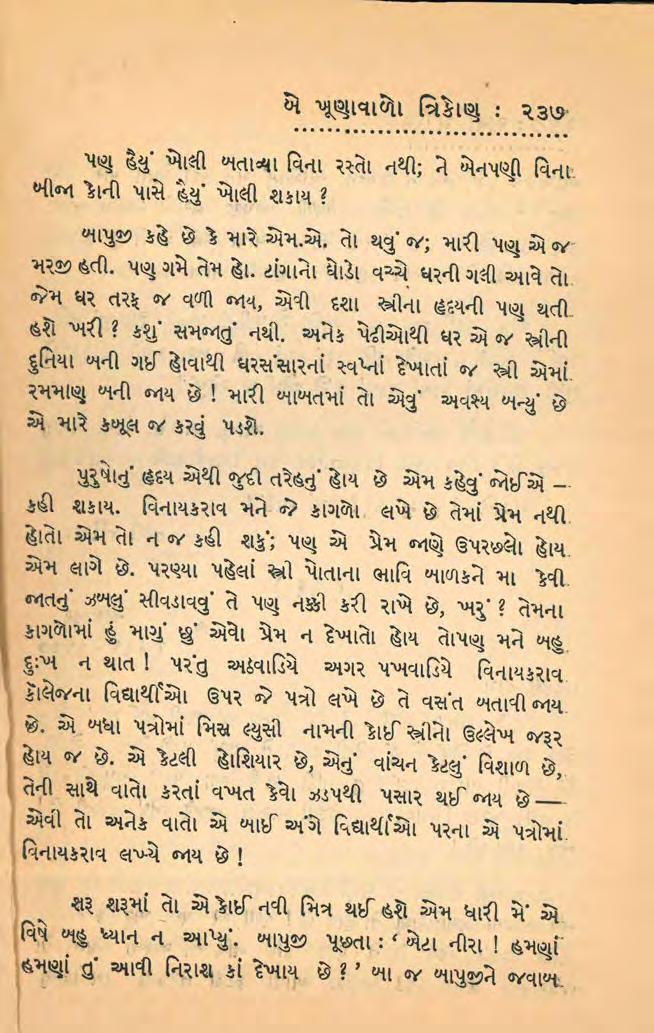 બે ખૂણાવાળો ત્રિકોણ : ૨૩૭
પણ હૈયું ખોલી બતાવ્યા વિના રસ્તો નથી; ને બેનપણી વિના
બીજા કોની પાસે હૈયું ખોલી શકાય ?
બાપુજી કહે છે કે મારે એમ.એ. તો થવું જ; મારી પણ એ જ
મરજી હતી. પણ ગમે તેમ હો. ટાંગાનો ઘોડો વચ્ચે ઘરની ગલી આવે તો
જેમ ઘર તરફ જ વળી જાય, એવી દશા સ્ત્રીના હૃદયની પણ થતી
હશે ખરી ? કશું સમજાતું નથી. અનેક પેઢીઓથી ઘર એ જ સ્ત્રીની
દુનિયા બની ગઈ હોવાથી ઘરસંસારનાં સ્વપ્નાં દેખાતાં જ સ્ત્રી એમાં
રમમાણ બની જાય છે ! મારી બાબતમાં તો એવું અવશ્ય બન્યું છે
એ મારે કબૂલ જ કરવું પડશે.
પુરુષોનું હૃદય એથી જુદી તરેહનું હોય છે એમ કહેવું જોઈએ —
કહી શકાય. વિનાયકરાવ મને જે કાગળો લખે છે તેમાં પ્રેમ નથી
હોતો એમ તો ન જ કહી શકું; પણ એ પ્રેમ જાણે ઉપરછલો હોય
એમ લાગે છે. પરણ્યા પહેલાં સ્ત્રી પોતાના ભાવિ બાળકને મા કેવી
જાતનું ઝબલું સીવડાવવું તે પણ નક્કી કરી રાખે છે, ખરું ? તેમના
કાગળોમાં હું માગું છું એવો પ્રેમ ન દેખાતો હોય તોપણ મને બહુ
દુઃખ ન થાત ! પરંતુ અઠવાડિયે અગર પખવાડિયે વિનાયકરાવ
કૉલેજના વિદ્યાર્થીઓ ઉપર જે પત્રો લખે છે તે વસંત બતાવી જાય
છે. એ બધા પત્રોમાં મિસ લ્યુસી નામની કોઈ સ્ત્રીનો ઉલ્લેખ જરૂર
હોય જ છે. એ કેટલી હોશિયાર છે, એનું વાંચન કેટલું વિશાળ છે,
તેની સાથે વાતો કરતાં વખત કેવો ઝડપથી પસાર થઈ જાય છે —
એવી તો અનેક વાતો એ બાઈ અંગે વિદ્યાર્થીઓ પરના એ પત્રોમાં
વિનાયકરાવ લખ્યે જાય છે !
શરૂ શરૂમાં તો એ કોઈ નવી મિત્ર થઈ હશે એમ ધારી મેં એ
વિષે બહુ ધ્યાન ન આપ્યું. બાપુજી પૂછતા : ‘ બેટા નીરા ! હમણાં
હમણાં તું આવી નિરાશ કાં દેખાય છે ? ’ બા જ બાપુજીને જવાબ